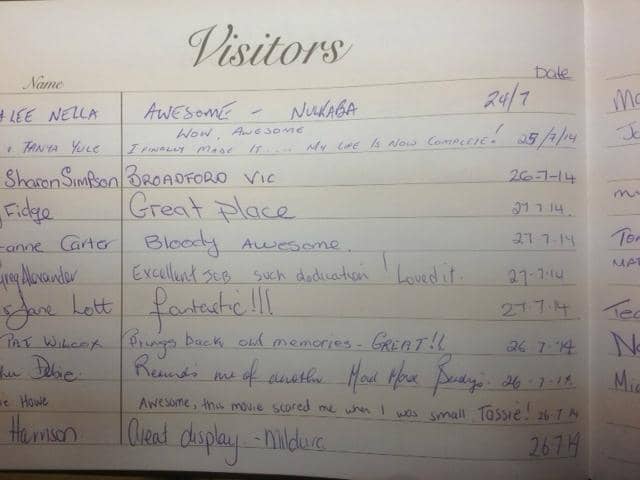 Visitors
Name Date
LEE NELLA AWESOME - NULKABA 24/7
WOW, AWESOME
& TANYA YULE I FINALLY MADE IT.... MY LIFE IS NOW COMPLETE! 25/7/14
Sharon Simpson BROADFORD VIC 26-7-14
Fidge Great place 27.7.14.
anne Carter Bloody Awesome. 27.7.14
Greg Alexander Excellent JOB such dedication! Loved it. 27-7-14
Jane Lott fantastic!!! 27.7.14
PAT WILCOX Brings back old memories - GREAT!! 26.7.14
Debie. Reminds me of another Mad Max 26-7-14
ie Howe Awesome, this movie scared me when I was small. Tassie! 26.7.14
Harrison Great display - Mildura 26 7 14